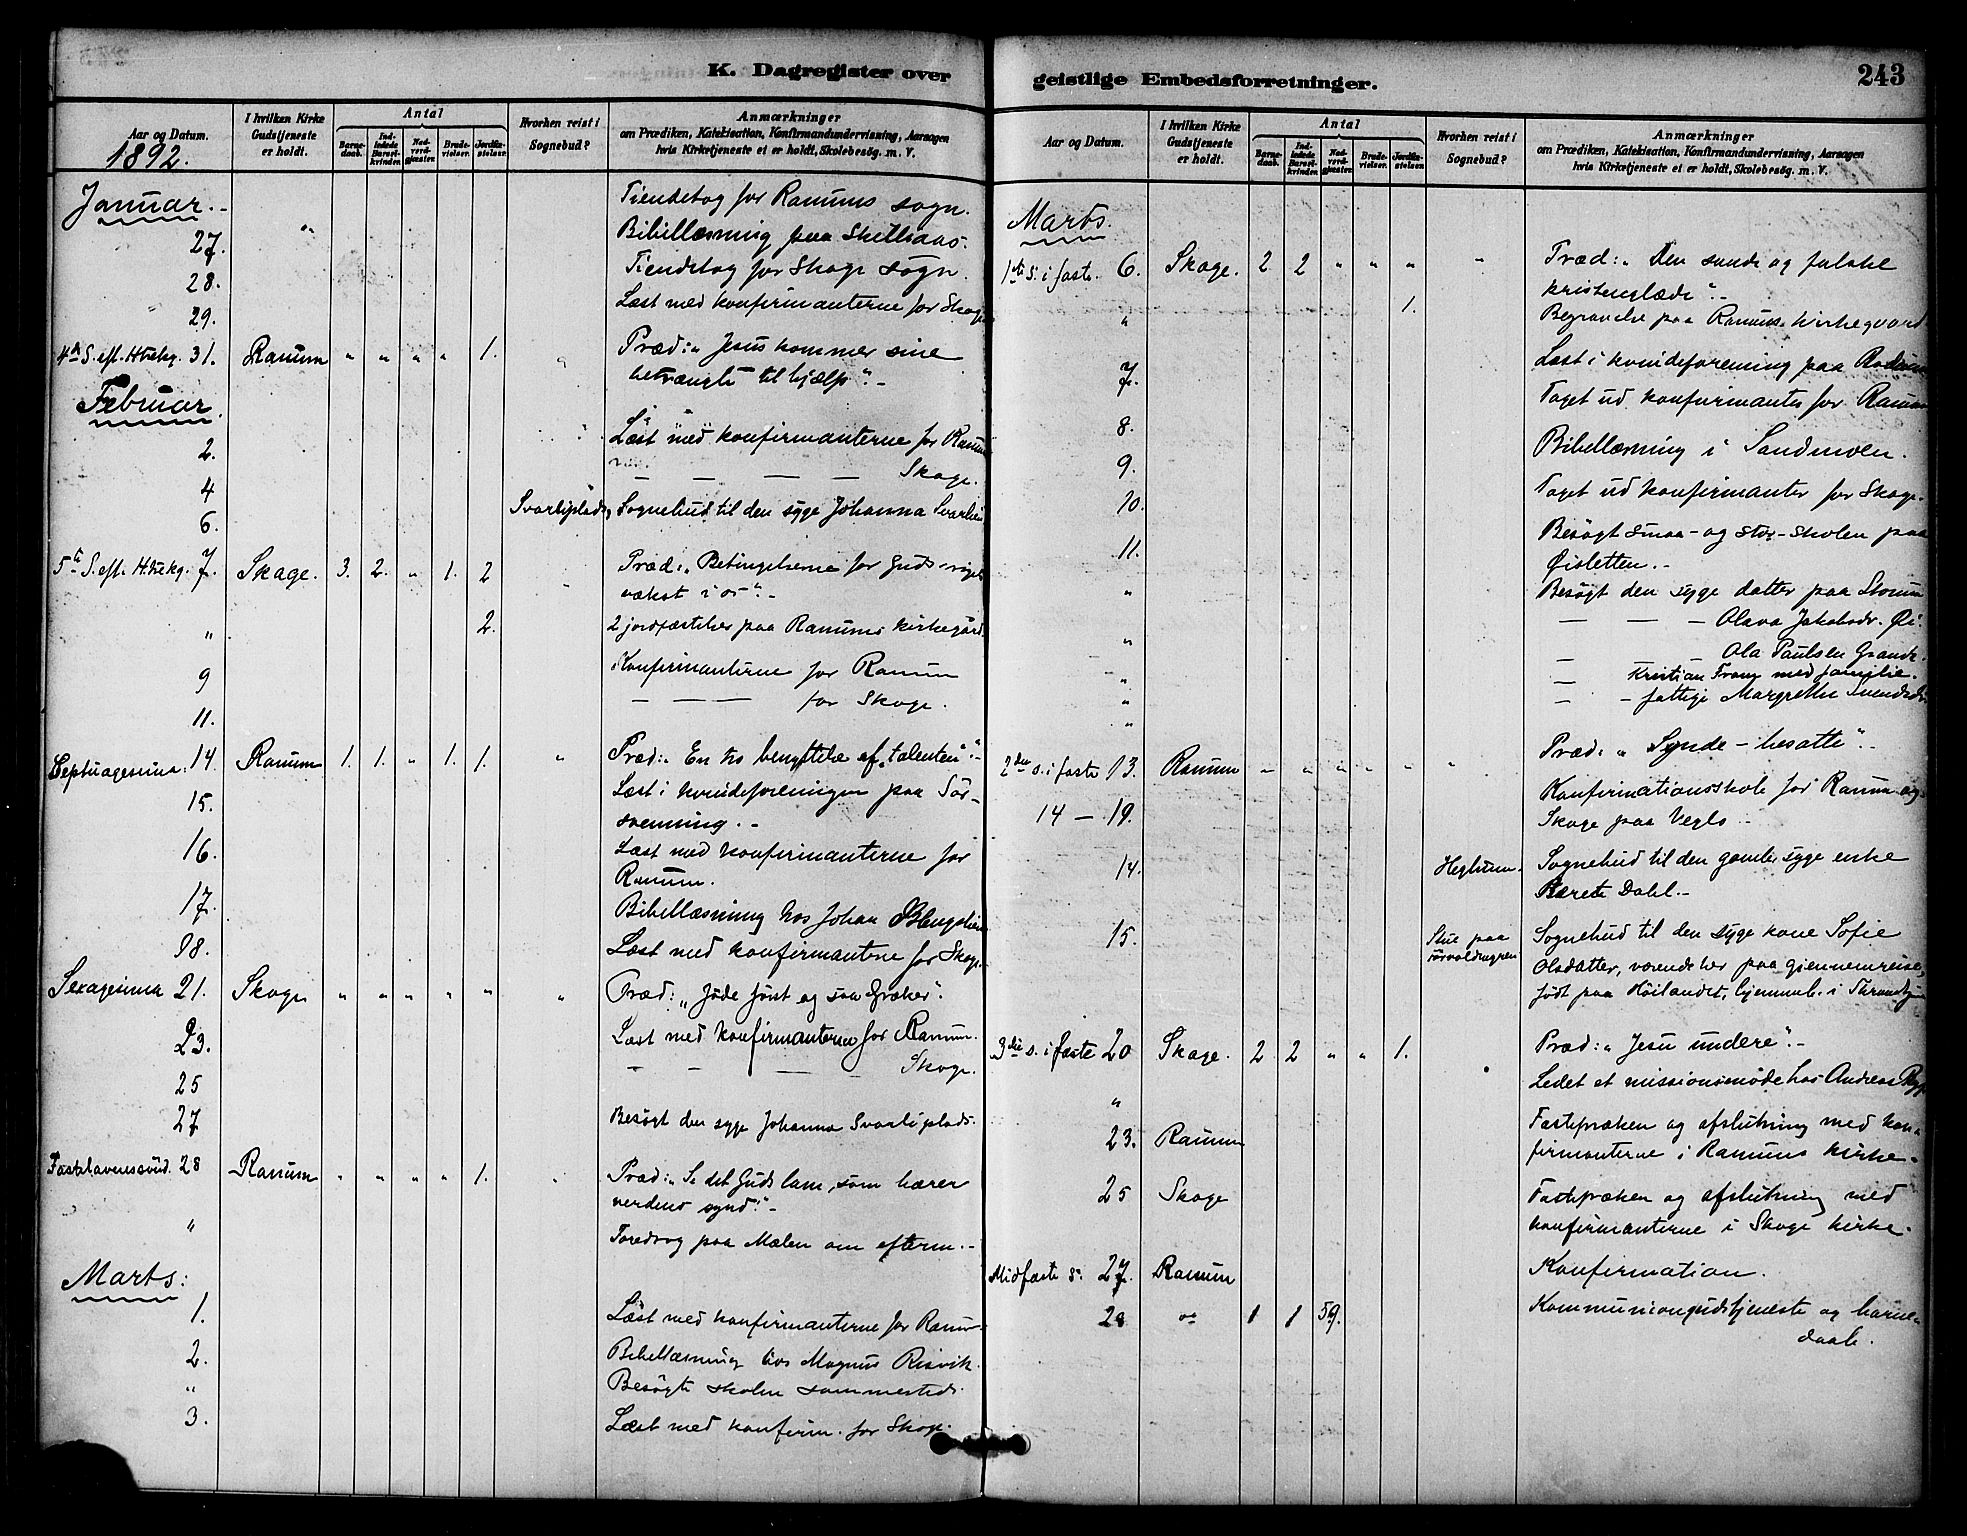 K. Dagregister over
Aar og Datum.
1892.
I hvilken Kirke Gudstjeneste er holdt.
Antal
Barnedaab.
Indledede Barselkvinder
Nadverdgjæster.
Brudevielser.
Jordfæstelser.
Hvorhen reist i Sognebud?
Anmærkninger
om Prædiken, Katekisation, Konfirmandundervisning, Aarsagen
hvis Kirketjeneste ei er holdt, Skolebesøg. m. V.
Januar. Tiendetog for Ranums sogn.
27. Bibellæsning paa Skillsaas.
28. Tiendetog for Skage sogn.
29. Læst med konfirmanterne for Skage
4de S. eft. H3kg. 31. Ranum " " " " 1. " Præd: "Jesus kommer sine
betrængte til hjælp". -
Februar.
2. Læst med konfirmanterne for Ranum
4 — — — — Skage.
6. Svarliplads, Sognebud til den syge Johanna Svarlien
5te S. eft. H.3kg. 7. Skage. 3. 2. " 1. 2 " Præd: "Betingelserne for Guds riges
vækst i os". -
" 2. 2 jordfæstelser paa Ranums kirkegård.
9 Konfirmanterne for Ranum
11. — — — for Skage.
Septuagesima. 14. Ranum 1. 1. " 1. 1. " Præd: "En tro benyttelse af "talenten"". -
15. Læst i kvindeforeningen paa Sør-
svenning. -
16. Læst med konfirmanterne for
Ranum.
17. Bibellæsning hos Johan
18. Læst med konfirmanterne for Skage.
Sexagesima 21. Skage " " " " " " Præd: "Jøde først og saa Græker".
23. Læst med konfirmanterne for Ranum.
25 — — — — Skage.
27 Besøgt den syge Johanna Svarliplads.
Fastelavenssønd. 28 Ranum " " " " 1. " Præd: "Se det Guds lam, som bærer
verdens synd". -
" Foredrag paa Mælen om efterm. -
Marts:
1. Læst med konfirmanterne for Ranum
2. Bibellæsning hos Magnus Risvik.
" Besøgte skolen sammesteds.
3. Læst med konfirm. for Skage.
geistlige Embedsforretninger.
243
Aar og Datum.
I hvilken Kirke Gudstjeneste er holdt.
Antal
Barnedaab.
Indledede Barselkvinder
Nadverdgjæster.
Brudevielser.
Jordfæstelser.
Hvorhen reist i Sognebud?
Anmærkninger
om Prædiken, Katekisation, Konfirmandundervisning, Aarsagen
hvis Kirketjeneste ei er holdt, Skolebesøg. m. V.
Marts.
1ste S. i faste. 6. Skage. 2 2 " " " " Præd: "Den sande og falske
kristenglæde". -
" 1. Begravelse paa Ranums kirkegaard
7. Læst i kvindeforening paa
8. Taget ud konfirmanter for Ranum
9. Bibellæsning i Sandmoen.
10. Taget ud konfirmanter for Skage.
11. Besøgt smaa- og stor-skolen paa
Øisletten. -
" Besøgt den syge datter paa Storum
" — — — Olava Jakobsdr. Øi.
" — — Ola Paulsen Grande.
" — Kristian Fram med familie.
" — - fattige Margrethe Svendsdr.
2den S. i faste 13. Ranum " " " " " " Præd: "Synde-besatte". -
14 — 19. Konfirmationsskole for Ranum og
Skage paa Vegls -
14. Heglum. Sognebud til den gamle syge enke
Berete Dahl. -
15. Stue paa Sognebud til den syge kone Sofie
Olsdatter, værende her paa gjennemreise,
født paa Høilandet, hjemmeh. i Throndhjem
3die S. i faste 20 Skage. 2 2 " " 1. Præd: "Jesu undere". -
" Ledet et missionsmøde hos Andreas
23. Ranum Fastepræken og afslutning med kon-
firmanterne i Ranums kirke.
25 Skage Fastepræken og afslutning med
konfirmanterne i Skage kirke.
Midfaste S. 27. Ranum Konfirmation.
28 do 1 1 59. Kommuniongudstjeneste og barne-
daab.